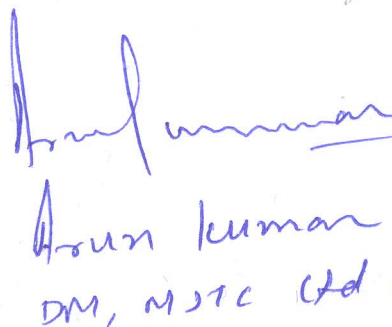 Arun Kumar
Arun Kumar
DM, MSTC Ltd